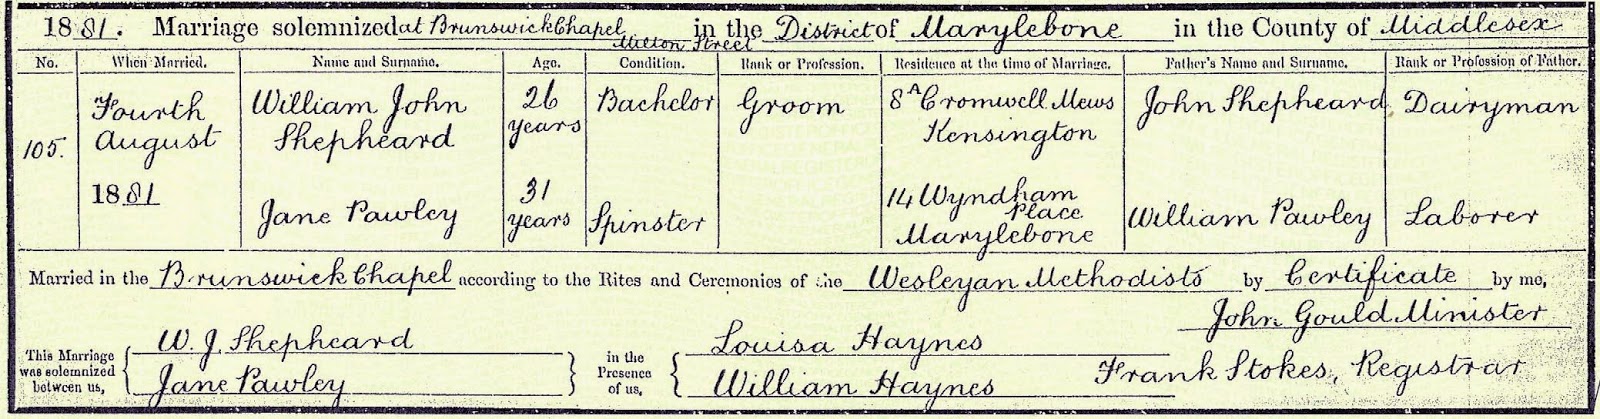 1881. Marriage solemnized at Brunswick Chapel Milton Street in the District of Marylebone in the County of Middlesex
No. When Married. Name and Surname. Age. Condition. Rank or Profession. Residence at the time of Marriage. Father's Name and Surname. Rank or Profession of Father.
105. Fourth August 1881 William John Shepheard 26 years Bachelor Groom 8A Cromwell Mews Kensington John Shepheard Dairyman
Jane Pawley 31 years Spinster 14 Wyndham Place Marylebone William Pawley Laborer
Married in the Brunswick Chapel according to the Rites and Ceremonies of the Wesleyan Methodists by Certificate by me,
John Gould Minister
This Marriage was solemnized between us, W. J. Shepheard Jane Pawley in the Presence of us, Louisa Haynes William Haynes Frank Stokes, Registrar